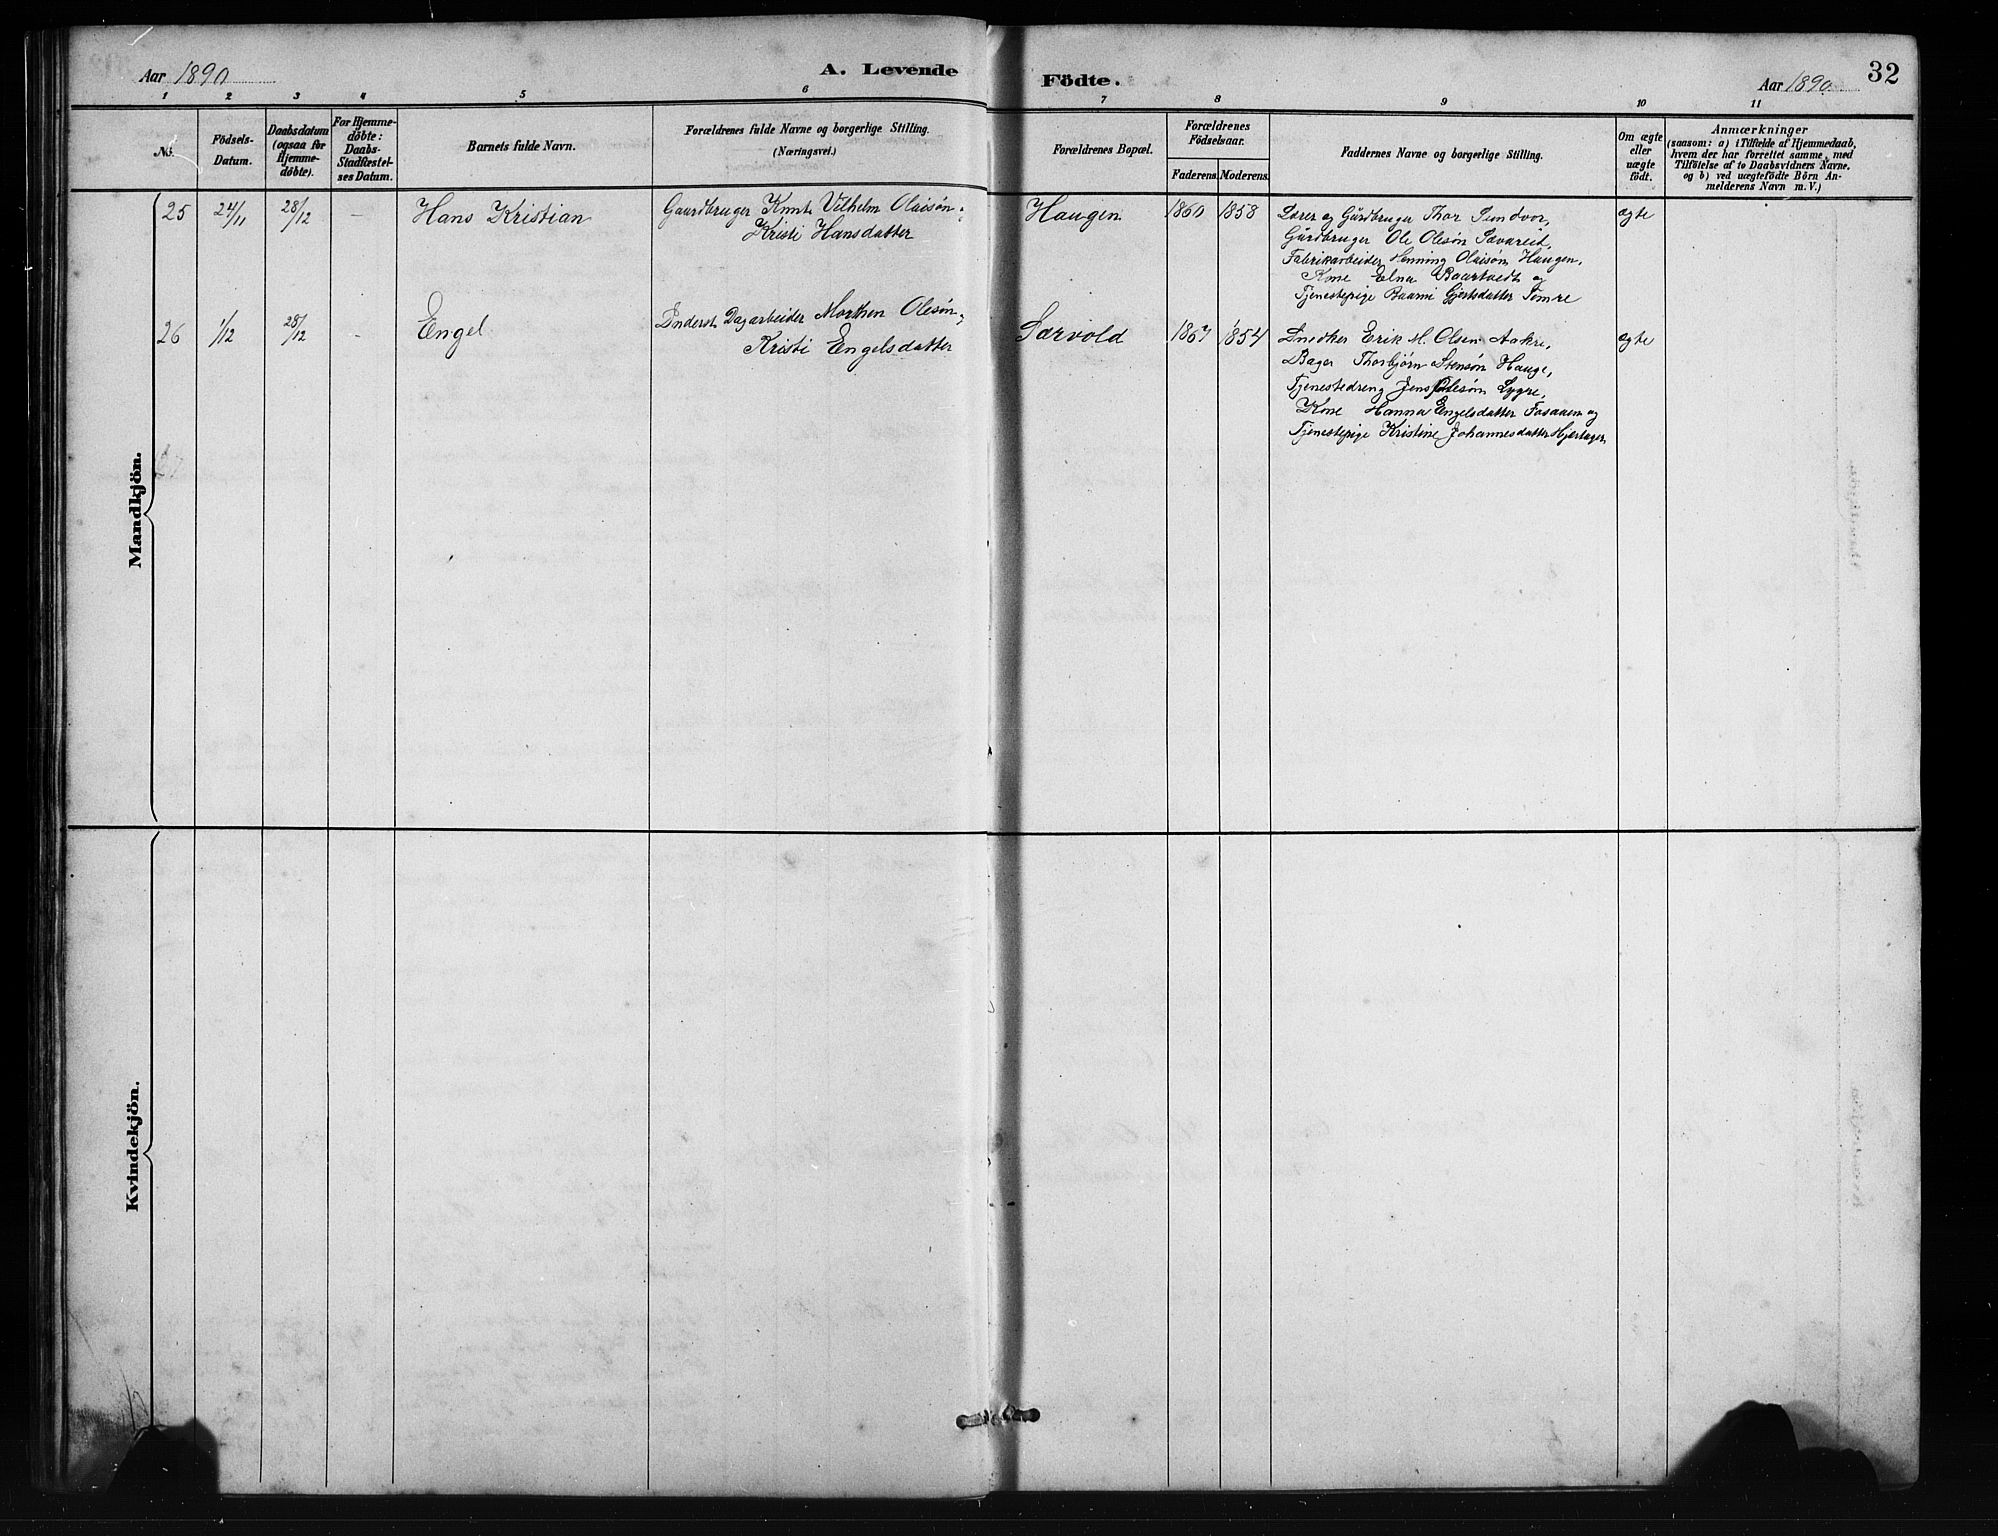 Aar 1890
A. Levende
Födte.
Aar 1890.
32
1 2 3 4 5 6 7 8 9 10 11
No.
Födsels-
Datum.
Daabsdatum
(ogsaa for
Hjemme-
döbte).
For Hjemme-
döbte:
Daabs-
Stadfæstel-
ses Datum.
Barnets fulde Navn.
Forældrenes fulde Navne og borgerlige Stilling.
(Næringsvei.)
Forældrenes Bopæl.
Forældrenes
Födselsaar.
Faderens. Moderens.
Faddernes Navne og borgerlige Stilling.
Om ægte
eller
uægte
födt.
Anmærkninger
(saasom: a) i Tilfælde af Hjemmedaab,
hvem der har forrettet samme, med
Tilföielse af to Daabsvidners Navne.
og b) ved uægtefödte Börn An-
melderens Navn m. V.)
Mandkjön.
25 24/11 28/12 – Hans Kristian
Gaardbruger Knut Vilhelm Olaisön,
Kristi Hansdatter
Haugen 1860 1858
Lærer og Gårdbruger Thor Sundvor,
Gårdbruger Ole Olesön Sævareid,
Fabrikarbeider Henning Olaisön Haugen,
Kone Elna og
Tjenestepige Gjertsdatter Tomre
ægte
26 1/12 28/12 – Engel
Inderst, Dagarbeider Morthen Olesön,
Kristi Engelsdatter
Særvold 1867 1854
Snedker Erik M. Olsen Aakre,
Bager Thorbjörn Stensön Hauge,
Tjenestedreng Jens Olesön Lygre,
Kone Hanna Engelsdatter og
Tjenestepige Kristine Johannesdatter
ægte
27
Kvindekjön.